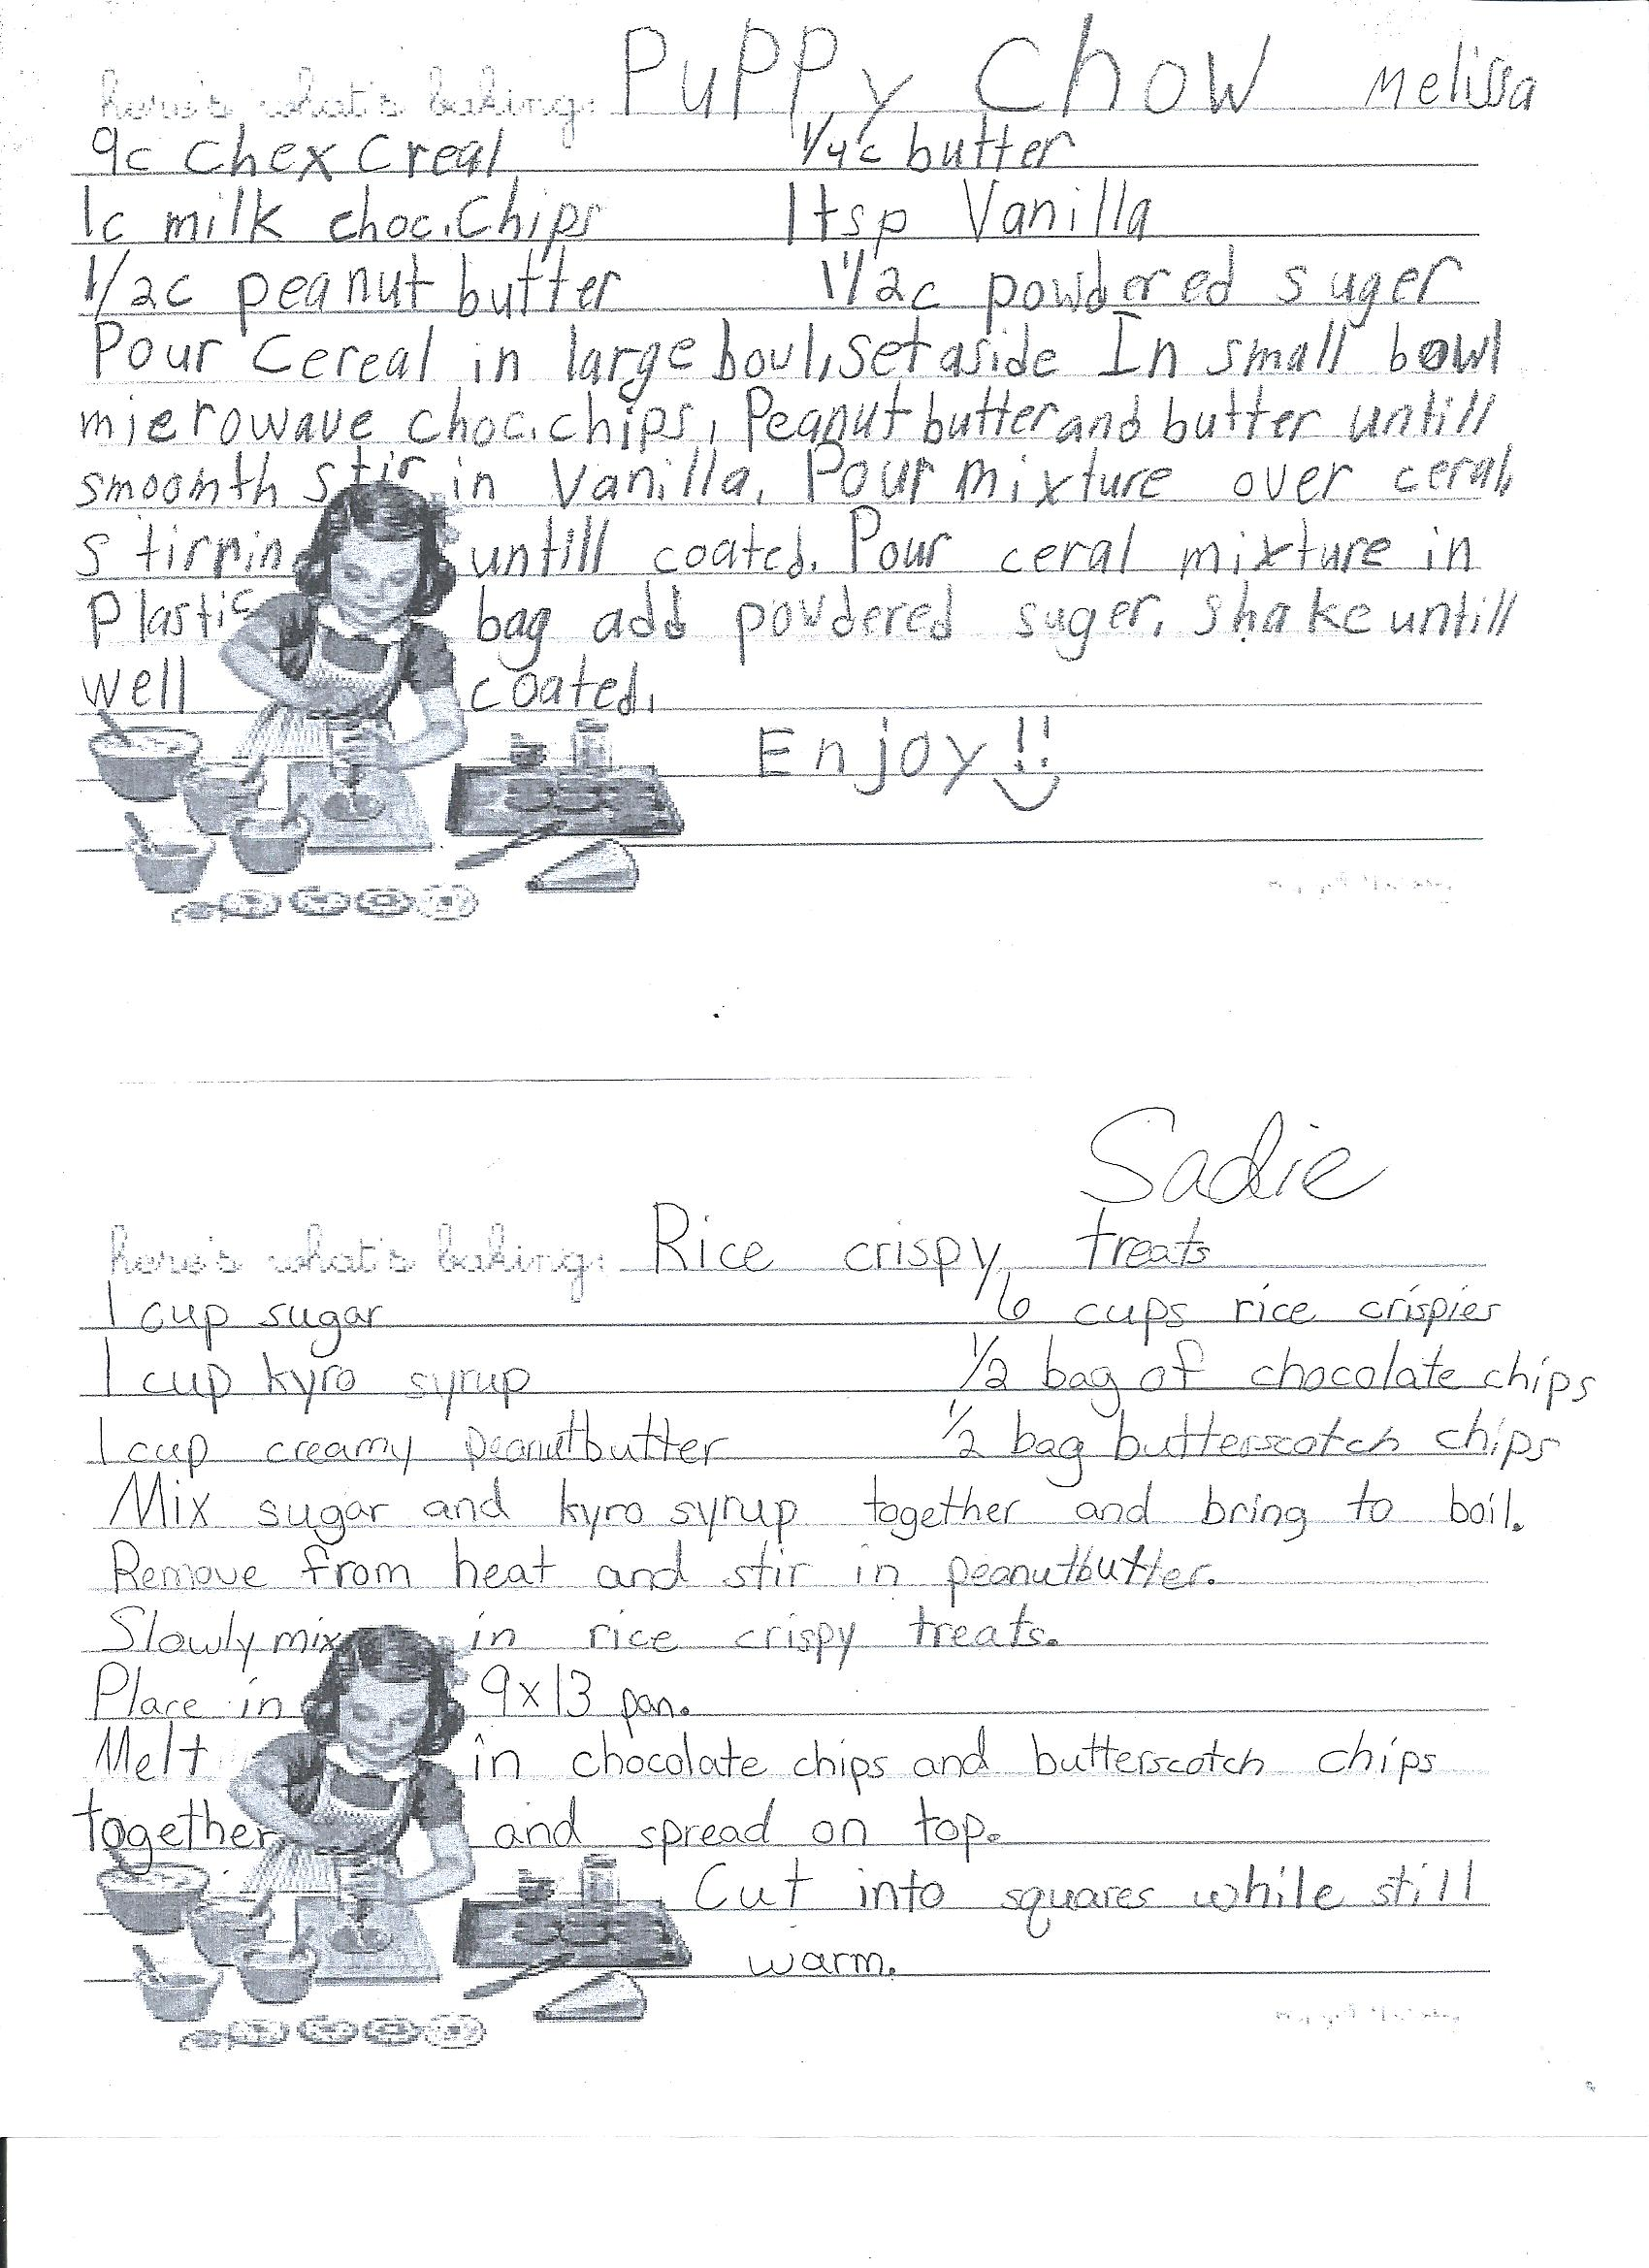 here's what's baking: Puppy Chow Melissa
9c Chex Creal 1/4c butter
1c milk choc. Chips 1 tsp Vanilla
1/2c peanut butter 1 1/2c powdered suger
Pour Cereal in large bowl, set aside In small bowl
microwave choc. chips, Peanut butter and butter untill
smoomth stir in Vanilla. Pour mixture over ceral,
stirring untill coated. Pour ceral mixture in
Plastic bag add powdered suger. Shake untill
well coated.
Enjoy!!
Sadie
here's what's baking: Rice crispy treats
1 cup sugar 6 cups rice crispies
1 cup kyro syrup 1/2 bag of chocolate chips
1 cup creamy peanutbutter 1/2 bag butterscotch chips
Mix sugar and kyro syrup together and bring to boil.
Remove from heat and stir in peanutbutter.
Slowly mix in rice crispy treats.
Place in 9x13 pan.
Melt in chocolate chips and butterscotch chips
together and spread on top.
Cut into squares while still
warm.